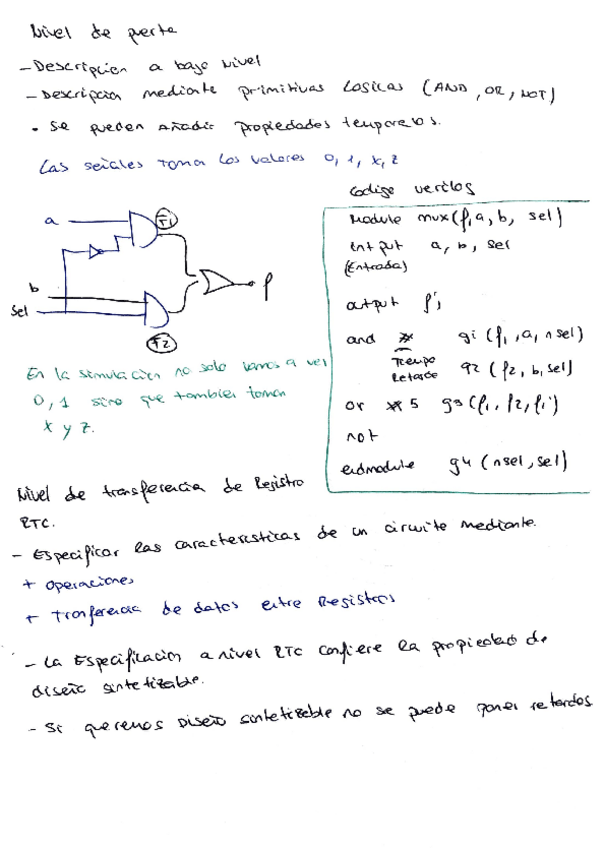 Nivel de puerta
- Descripcion a bajo nivel
- Descripcion mediante primitivas logicas (AND, OR, NOT)
• Se pueden añadir propiedades temporales.
Las señales toman los valores 0, 1, x, z
Codigo verilog
a
F1
b
sel
f
F2
module mux(f,a, b, sel)
input a, b, sel
(Entrada)
output f;
and # g1 (f1, a, nsel)
Tiempo
Retardo g2 (f2, b, sel)
or # 5 g3 (f1, f2, f)
not
endmodule g4 (nsel, sel)
En la simulacion no solo vamos a ver
0, 1 sino que tambien toman
x y z.
Nivel de transferencia de Registro
RTC.
- Especificar las caracteristicas de un circuito mediante.
+ Operaciones
+ Tranferencia de datos entre Registros
- La Especificacion a nivel RTC confiere la propiedad de
diseño sintetizable.
- Si queremos Diseño sintetizable no se puede poner retardos